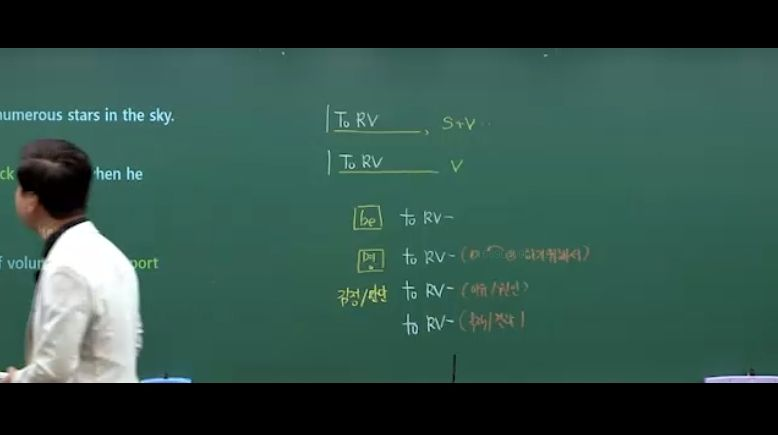 numerous stars in the sky.
ck when he
f volun port
To RV , S+V..
To RV V
be to RV-
명 to RV- ( 하기위해서)
감정/판단 to RV- (이유/원인)
to RV-